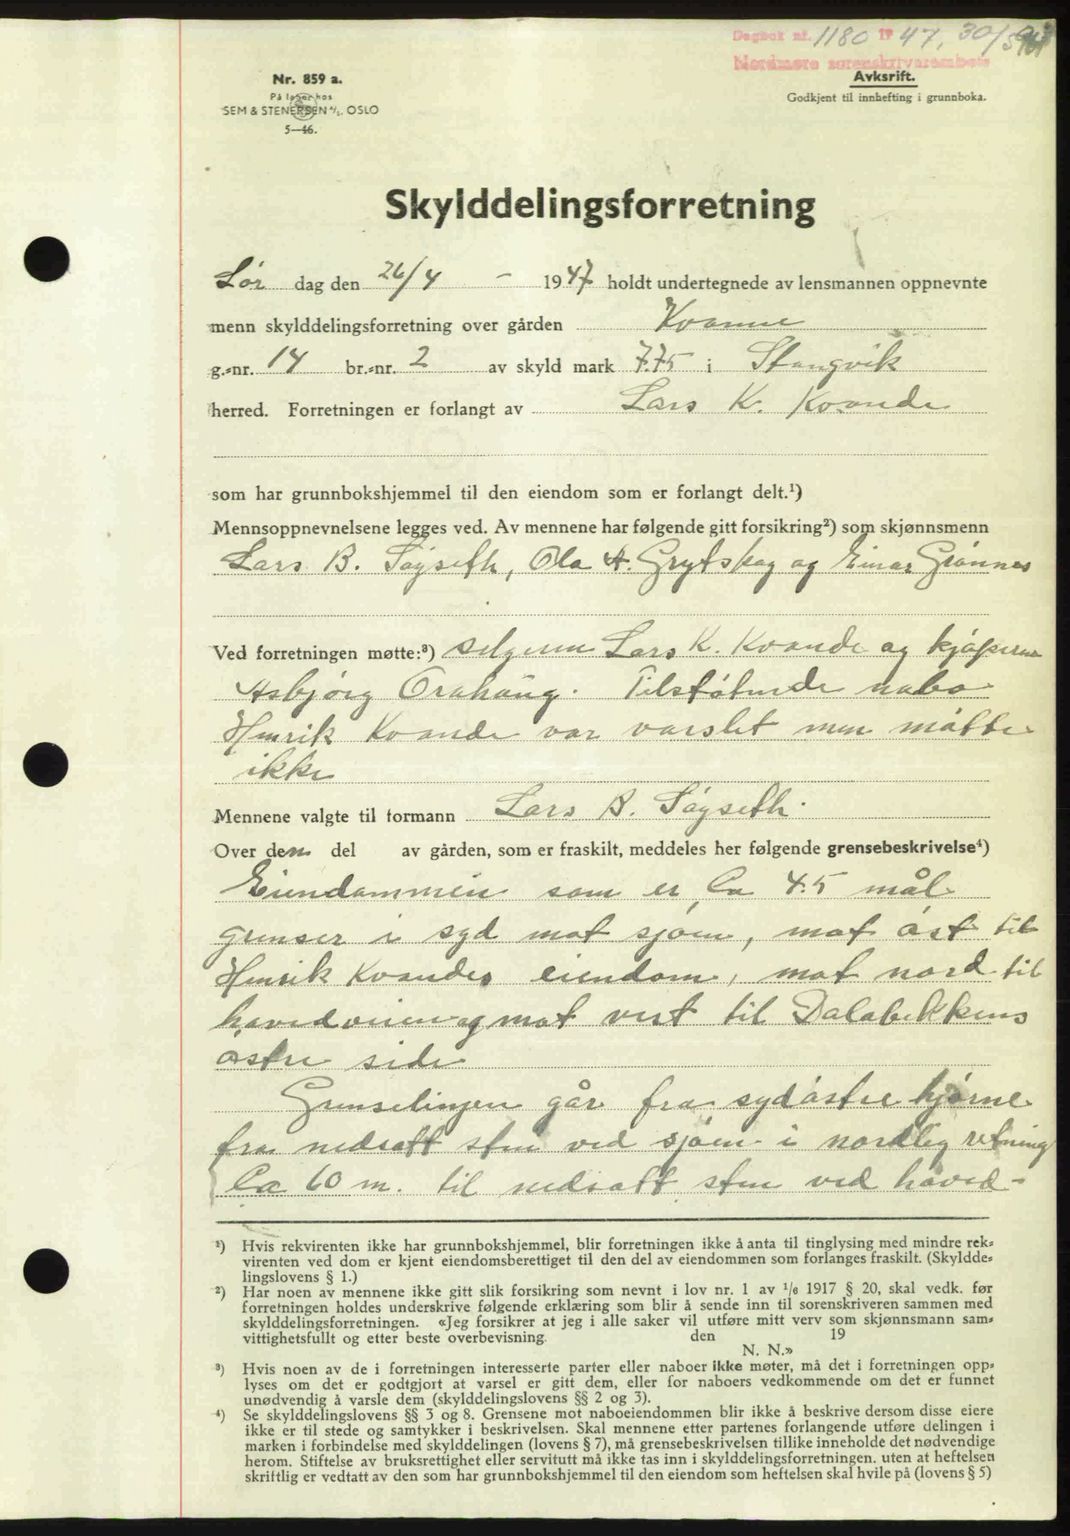 Dagbok nr. 1180 1947, 30/5
Nordmøre sorenskrivarembete
Nr. 859 a.
På lager hos
SEM & STENERSEN A/S. OSLO
5—46.
Avskrift.
Godkjent til innhefting i grunnboka.
Skylddelingsforretning
Lør dag den 26/4 - 1947 holdt undertegnede av lensmannen oppnevnte
menn skylddelingsforretning over gården Kvanne
g.-nr. 14 br.-nr. 2 av skyld mark 7.75 i Stangvik
herred. Forretningen er forlangt av Lars K. Kvande
som har grunnbokshjemmel til den eiendom som er forlangt delt.¹)
Mennsoppnevnelsene legges ved. Av mennene har følgende gitt forsikring²) som skjønnsmenn
Lars B. Søyseth, Ola A. Grytskog og Einar Grønnes
Ved forretningen møtte:³) selgeren Lars K. Kvande og kjøperen
Asbjørg Orahaug. Tilstøtende nabo
Henrik Kvande var varslet men møtte
ikke
Mennene valgte til formann Lars B. Søyseth.
Over den del av gården, som er fraskilt, meddeles her følgende grensebeskrivelse⁴)
Eiendommen som er Ca 4.5 mål
grenser i syd mot sjøen, mot øst til
Henrik Kvandes eiendom, mot nord til
hovedveien og mot vest til Dalabekkens
østre side
Grenselinjen går fra sydøstre hjørne
fra nedsatt sten ved sjøen i nordlig retning
Ca 60 m. til nedsatt sten ved hoved-
¹) Hvis rekvirenten ikke har grunnbokshjemmel, blir forretningen ikke å anta til tinglysing med mindre rek-
virenten ved dom er kjent eiendomsberettiget til den del av eiendommen som forlanges fraskilt. (Skyldde-
lingslovens § 1.)
²) Har noen av mennene ikke gitt slik forsikring som nevnt i lov nr. 1 av 1/6 1917 § 20, skal vedk. før
forretningen holdes underskrive følgende erklæring som blir å sende inn til sorenskriveren sammen med
skylddelingsforretningen. «Jeg forsikrer at jeg i alle saker vil utføre mitt verv som skjønnsmann sam-
vittighetsfullt og etter beste overbevisning. den 19
N. N.»
³) Hvis noen av de i forretningen interesserte parter eller naboer ikke møter, må det i forretningen opp-
lyses om det er godtgjort at varsel er gitt dem, eller for naboers vedkommende om det er funnet
unødvendig å varsle dem (skylddelingslovens §§ 2 og 3).
⁴) Se skylddelingslovens §§ 3 og 8. Grensene mot naboeiendommen blir ikke å beskrive dersom disse eiere
ikke er til stede og samtykker i beskrivelsen. Skal mennene etter partenes forlangende utføre delingen i
marken i forbindelse med skylddelingen (lovens § 7), må grensebeskrivelsen tillike inneholde det nødvendige
herom. Stiftelse av bruksrettighet eller servitutt må ikke tas inn i skylddelingsforretningen, uten at heftelsen
skriftlig er vedtatt av den som har grunnbokshjemmel til den eiendom som heftelsen skal hvile på (lovens § 5)